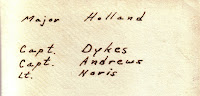 Major Holland
Capt. Dykes
Capt. Andrews
Lt. Noris